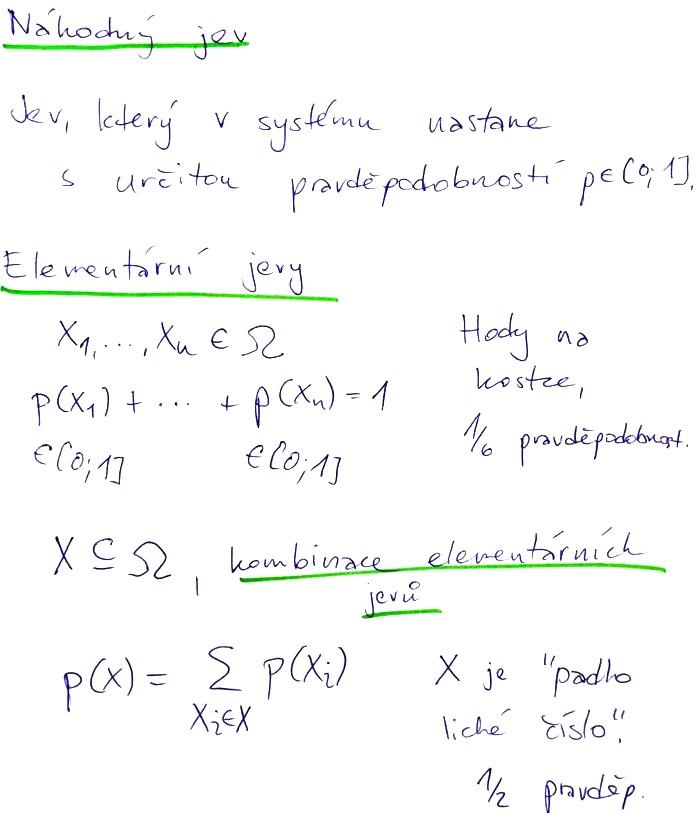 Náhodný jev
Jev, který v systému nastane
s určitou pravděpodobností p∈[0;1].
Elementární jevy
X₁,...,Xₙ ∈ Ω
p(X₁) + ... + p(Xₙ) = 1
∈[0;1] ∈[0;1]
Hody na
kostce,
1/6 pravděpodobnost.
X ⊆ Ω, kombinace elementárních
jevů
p(X) = ∑ p(Xᵢ)
Xᵢ∈X
X je "padlo
liché číslo".
1/2 pravděp.